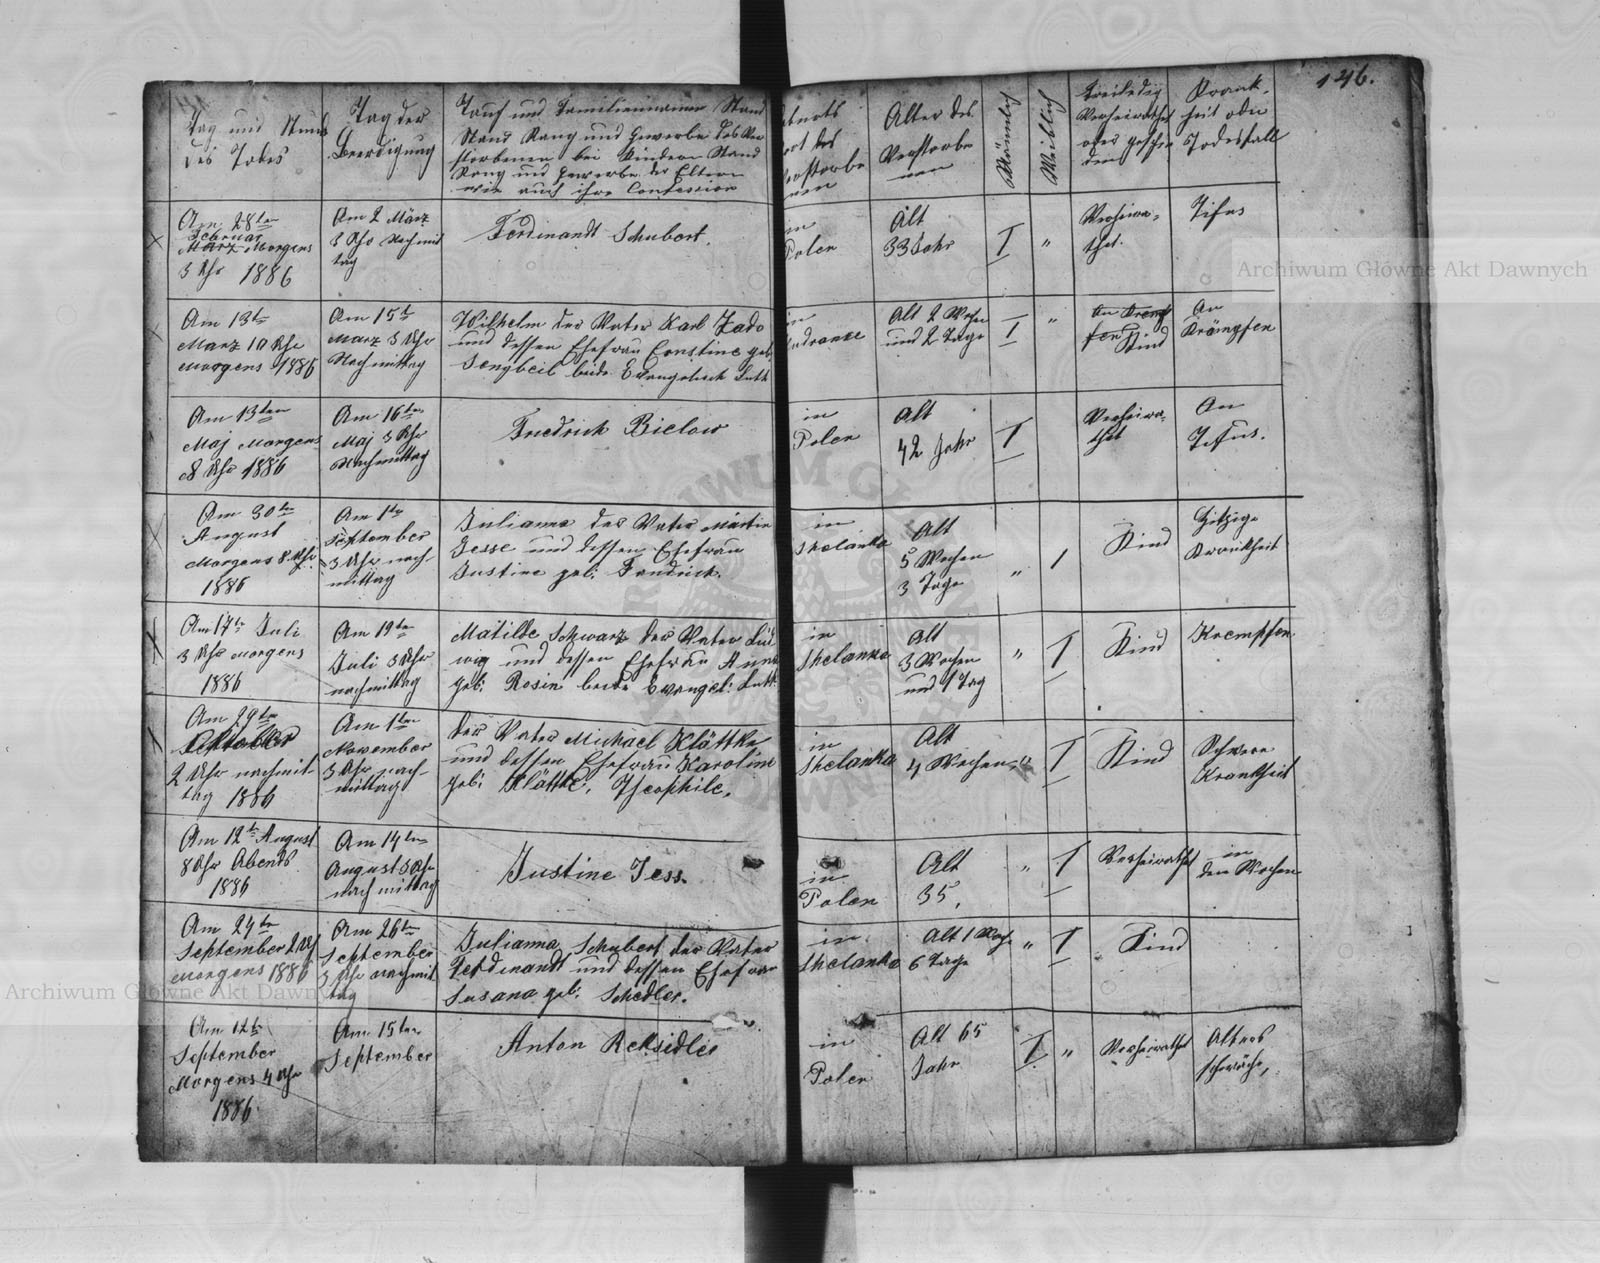 146.
Tag und Stunde
des Todes
Tag der
Beerdigung
Tauf und Familiennamen Stand
Stand Rang und Gewerbe des Ver
storbenen bei Kindern Stand
Rang und Gewerbe der Eltern
wie auch ihre Confession
Alter des
Verstorbe
nen
Männlich
Weiblich
Verheirathet
oder geschie
den
Krank-
heit oder
Todesfall
Am 28ten
Februar
März Morgens
3 Uhr 1886
Am 2 März
3 Uhr Nachmit
tag
Ferdinandt Schubert.
in
Polen
Alt
33 Jahr
I
"
Verheira-
thet.
Tifus
Am 13te
März 10 Uhr
Morgens 1886
Am 15te
März 3 Uhr
Nachmittag
Wilhelm der Vater Karl Zado
und dessen Ehefrau Ernstine geb
Sengbeil beide Evangelisch Luth
in
Alt 2 Wochen
und 2 Tage
I
"
Kind
An
Krämpfen
Am 13ten
Maj Morgens
8 Uhr 1886
Am 16ten
Maj 3 Uhr
Nachmittag
Friedrich Bielow
in
Polen
Alt
42 Jahr
I
Verheira-
thet
An
Tifus.
Am 30ten
August
Morgens 8 Uhr
1886
Am 1te
September
3 Uhr nach-
mittag
Julianna der Vater Martin
Jesse und dessen Ehefrau
Justine geb: Fendrich.
in
Shelanka
Alt
5 Wochen
3 Tage
"
I
Kind
Hitzige
Krankheit
Am 17te Juli
3 Uhr Morgens
1886
Am 19ten
Juli 3 Uhr
nachmittag
Matilde Schwarz der Vater Lud
wig und dessen Ehefrau Anna
geb: Rosin beide Evangel: Luth:
in
Shelanka
Alt
3 Wochen
und 1 Tag
"
I
Kind
Krempfen
Am 29ten
Oktober
2 Uhr nachmit
tag 1886
Am 1ten
November
3 Uhr nach-
mittag
der Vater Michael Klättke
und dessen Ehefrau Karoline
geb: Klättke, Theophile,
in
Shelanka
Alt
4 Wochen
"
I
Kind
Schwere
Krankheit
Am 12te August
8 Uhr Abends
1886
Am 14ten
August 3 Uhr
nachmittag
Justine Jess.
in
Polen
Alt
35,
"
I
Verheirathet
in
den Wochen
Am 24ten
September 2 Uhr
Morgens 1886
Am 26ten
September
3 Uhr Nachmit
tag
Julianna Schubert der Vater
Ferdinandt und dessen Ehefrau
Susana geb: Schedler.
in
Shelanka
Alt 1 Woche
6 Tage
"
I
Kind
Am 12te
September
Morgens 4 Uhr
1886.
Am 15ten
September
Anton Reksidler
in
Polen
Alt 65
Jahr
I
"
Verheirathet
Alters
schwäche,
Archiwum Główne Akt Dawnych
Archiwum Główne Akt Dawnych